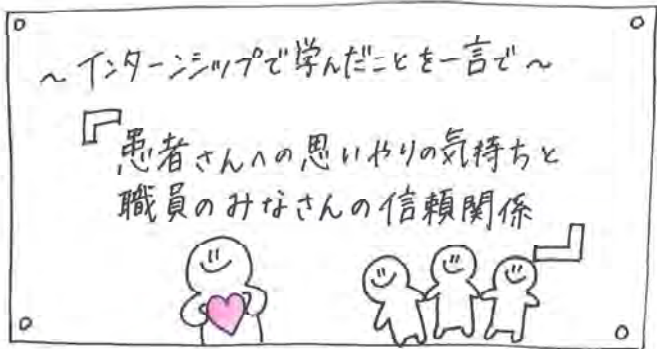 ～インターンシップで学んだことを一言で～
『患者さんへの思いやりの気持ちと
職員のみなさんの信頼関係』